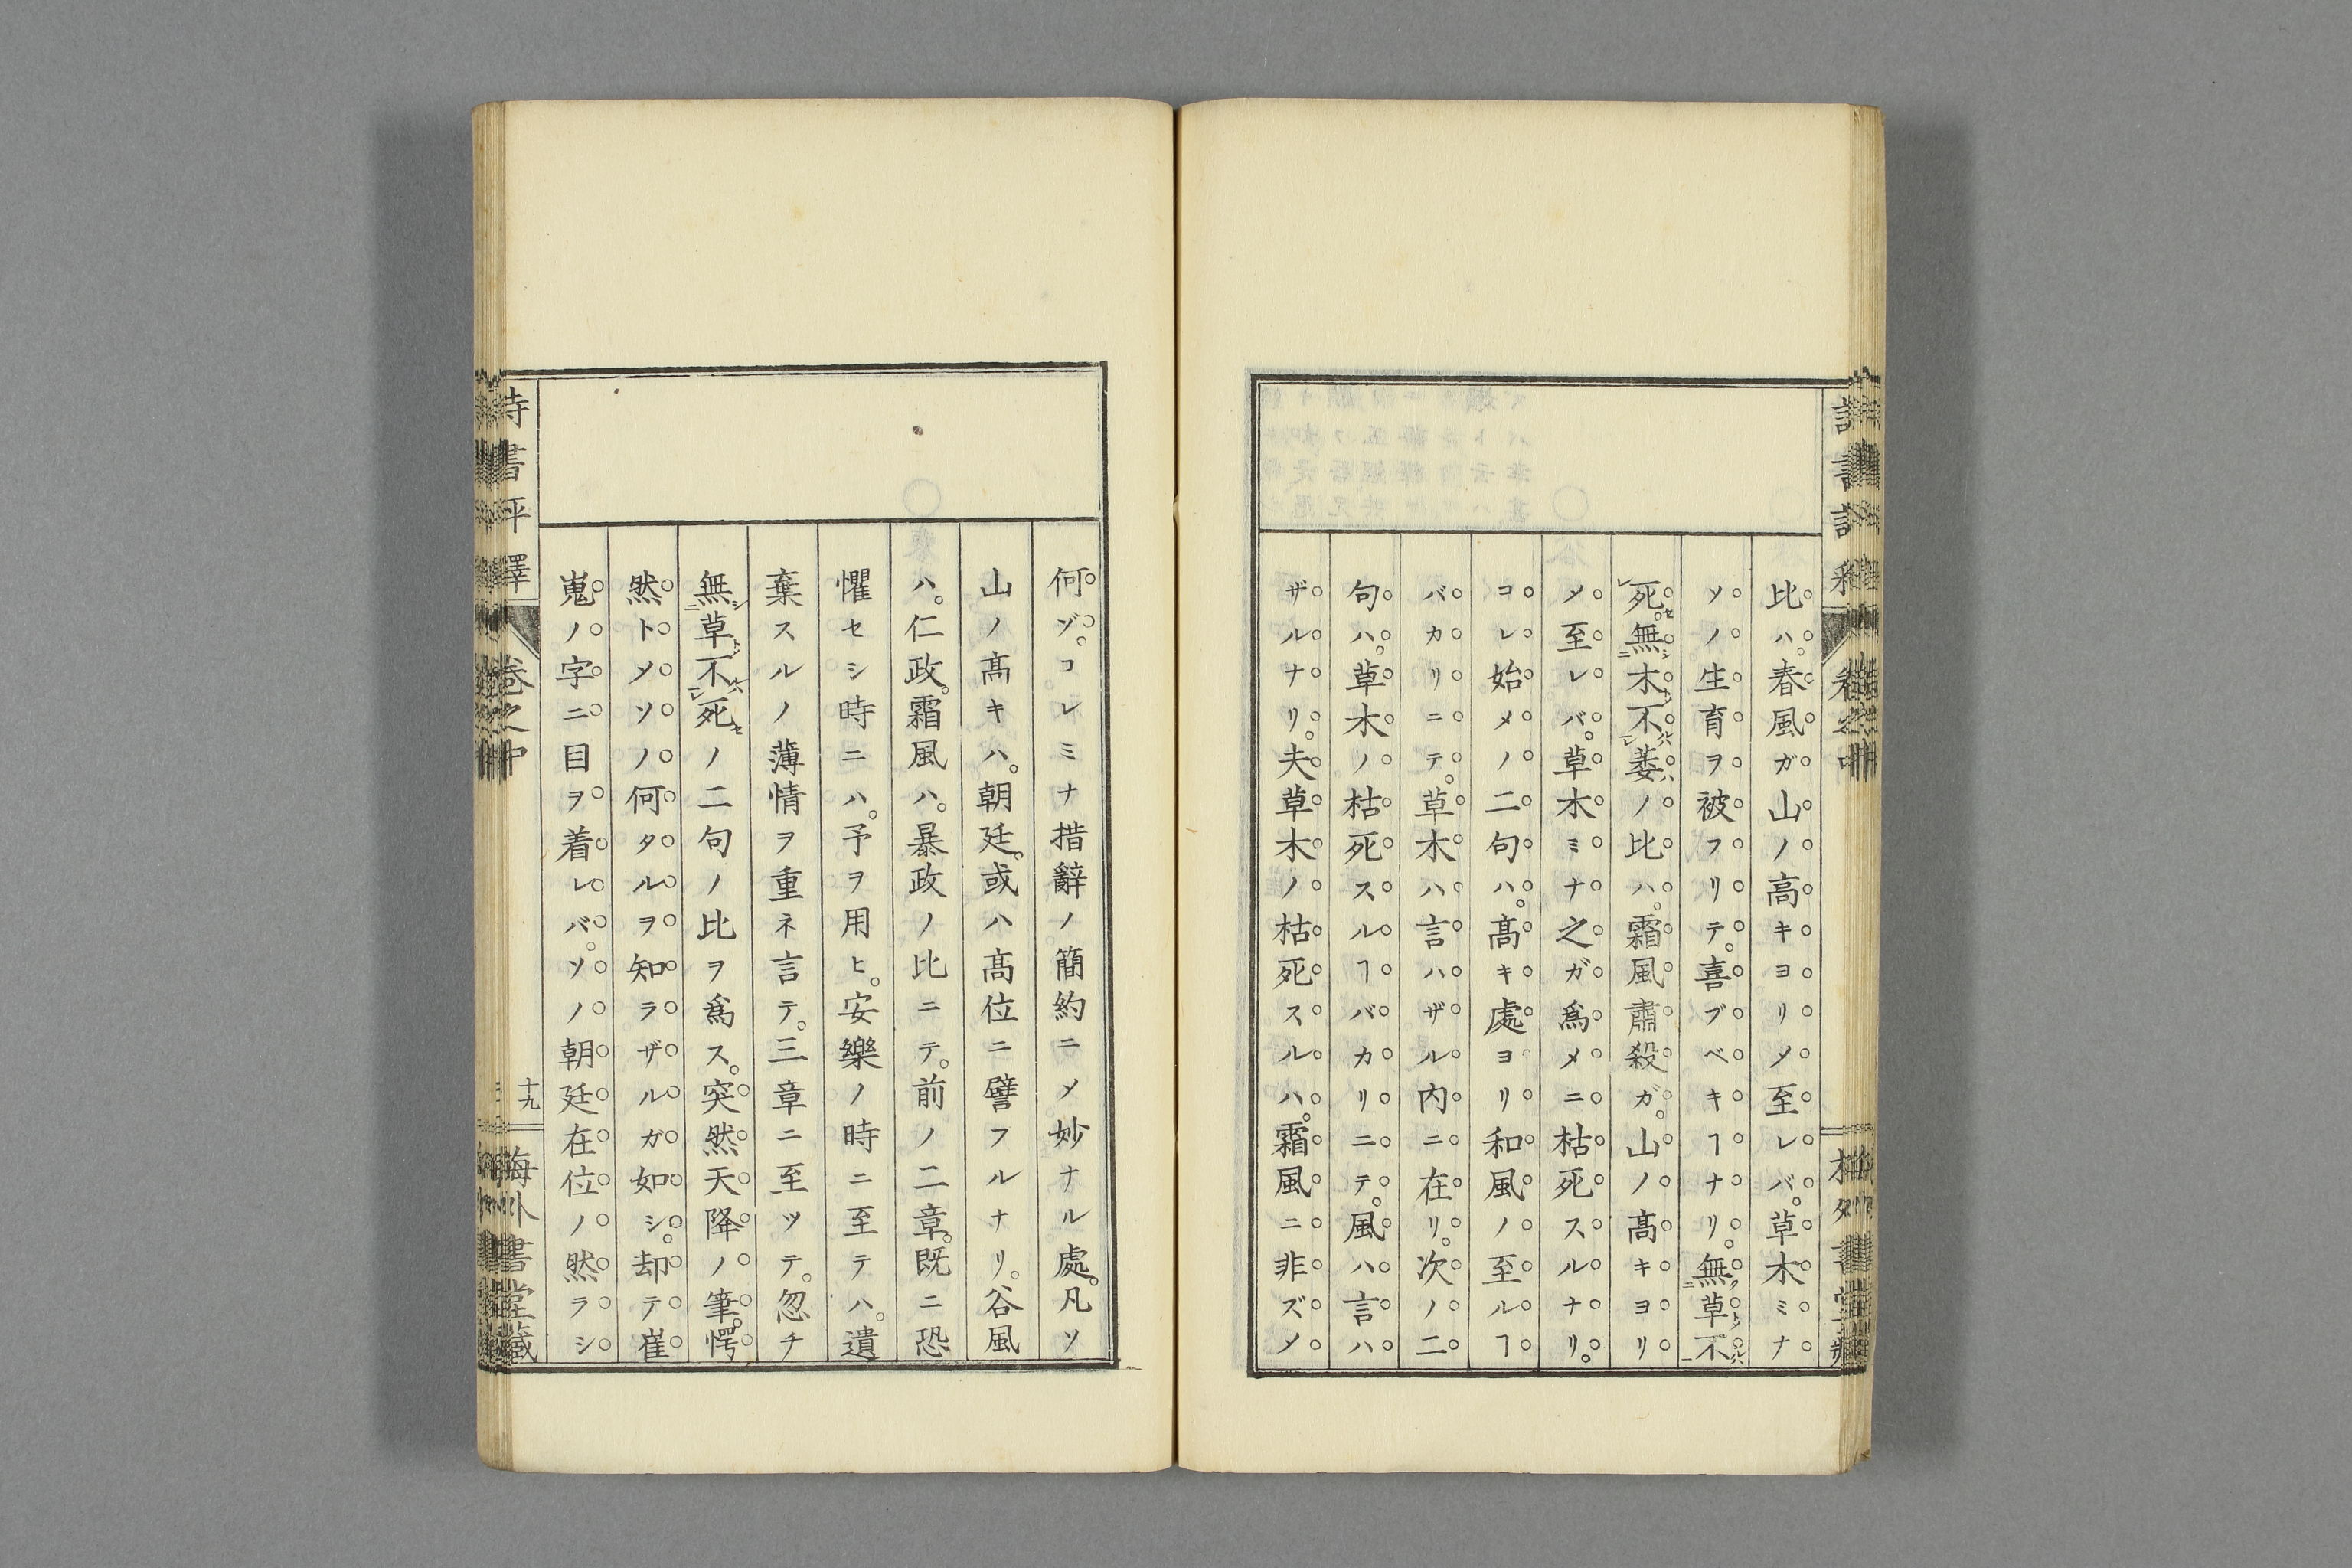 比ハ。春風ガ山ノ高キヨリ〆至レバ。草木ミナ
ソノ生育ヲ被フリテ。喜ブベキヿナリ。無草不
死。無木不萎ノ比ハ。霜風肅殺ガ。山ノ髙キヨリ
〆至レバ。草木ミナ之ガ爲メニ枯死スルナリ。
コレ始メノ二句ハ。髙キ處ヨリ和風ノ至ルヿ
バカリニテ。草木ハ言ハザル内ニ在リ。次ノ二
句ハ。草木ノ枯死スルヿバカリニテ。風ハ言ハ
ザルナリ。夫草木ノ枯死スルハ。霜風ニ非ズ〆
何ゾ。コレミナ措辭ノ簡約ニ〆妙ナル處。凡ソ
山ノ髙キハ。朝廷。或ハ髙位ニ譬フルナリ。谷風
ハ。仁政。霜風ハ。暴政ノ比ニテ。前ノ二章。既ニ恐
懼セシ時ニハ。予ヲ用ヒ。安樂ノ時ニ至テハ。遺
棄スルノ薄情ヲ重ネ言テ。三章ニ至ツテ。忽チ
無草不死ノ二句ノ比ヲ爲ス。突然天降ノ筆。愕
然ト〆ソノ何タルヲ知ラザルガ如シ。却テ崔
嵬ノ字ニ目ヲ着レバ。ソノ朝廷在位ノ然ラシ
書
卷之中
十九
海外書堂藏